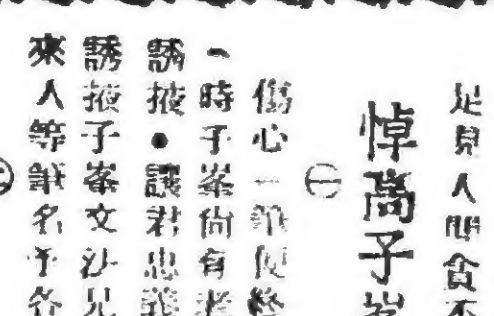 足見人間貪不
悼高子峯
㊀
傷心一筆便
一時子峯尚有老
誘掖●讓君忠義
誘掖子峯文沙兄
來人等筆名予各